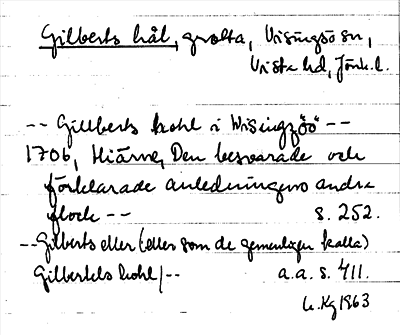 Gilberts hål, grotta, Visingsö sn,
Vista hd, Jönk. l.
-- Gillberts kohl i Wisingzöö --
1706, Hiärne, Den besvarade och
förklarade anledningens andra
flock -- s. 252.
-- Gilberts eller (eller som de gemenligen kalla)
Gilbertels hohl/-- a.a. s. 411.
Kg 1963